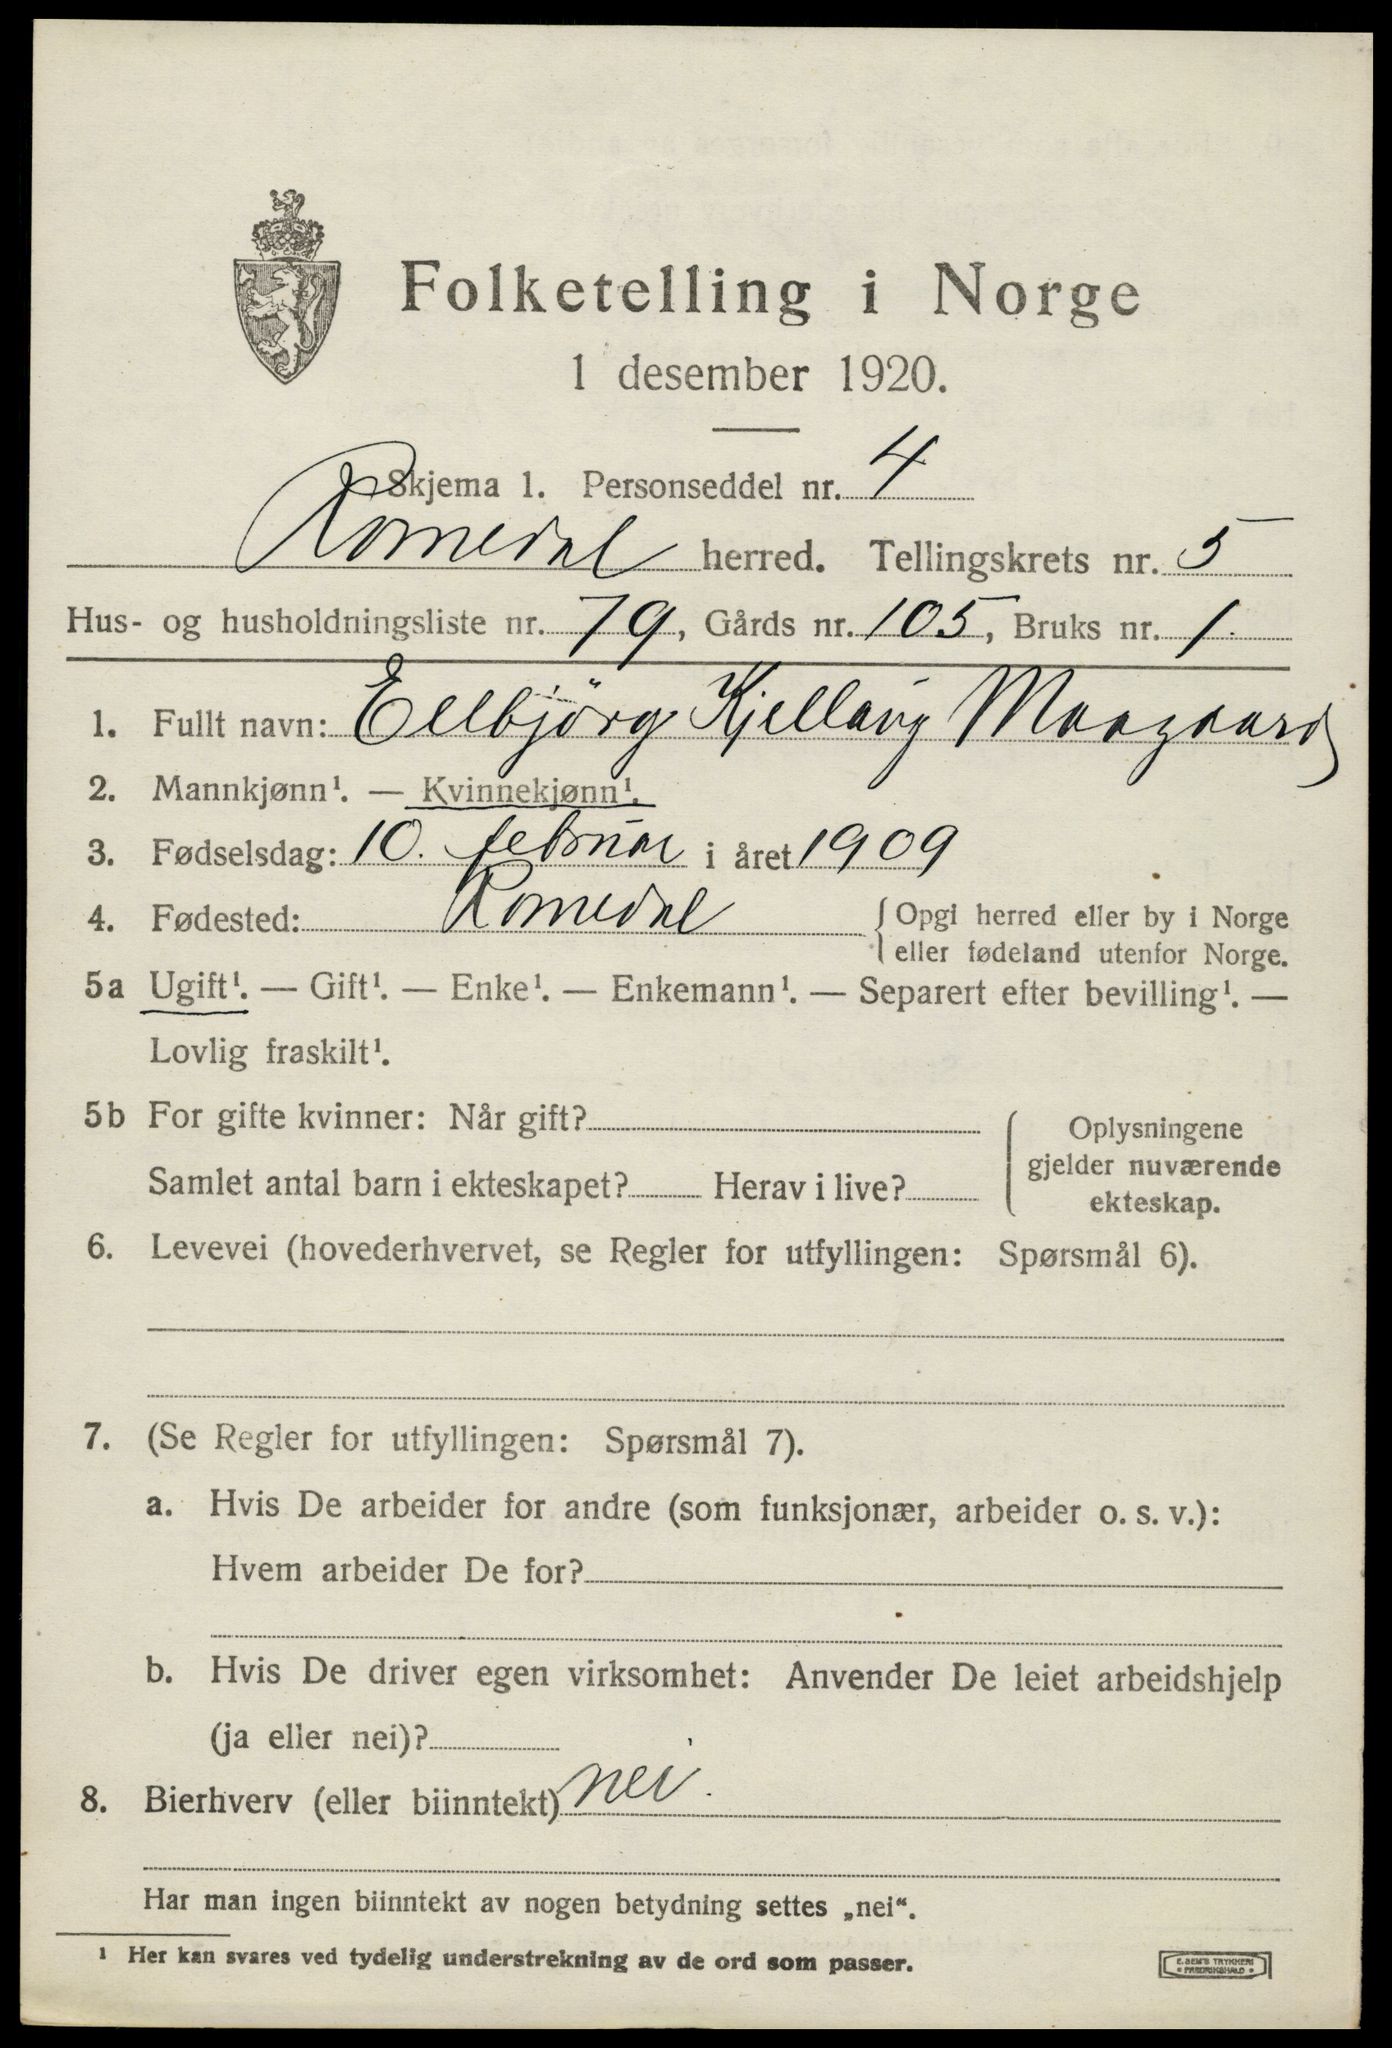 Folketelling i Norge
1 desember 1920.
Skjema 1. Personseddel nr. 4
Romedal herred. Tellingskrets nr. 5
Hus- og husholdningsliste nr. 79, Gårds nr. 105, Bruks nr. 1.
1. Fullt navn: Ellbjörg Kjellaug Maagaard
2. Mannkjønn¹. — Kvinnekjønn¹.
3. Fødselsdag: 10. februar i året 1909
4. Fødested: Romedal {Opgi herred eller by i Norge
eller fødeland utenfor Norge.
5a Ugift¹. — Gift¹. — Enke¹. — Enkemann¹. — Separert efter bevilling¹. —
Lovlig fraskilt¹.
5b For gifte kvinner: Når gift?
Samlet antal barn i ekteskapet? Herav i live?
Oplysningene
gjelder nuværende
ekteskap.
6. Levevei (hovederhvervet, se Regler for utfyllingen: Spørsmål 6).
7. (Se Regler for utfyllingen: Spørsmål 7).
a. Hvis De arbeider for andre (som funksjonær, arbeider o. s. v.):
Hvem arbeider De for?
b. Hvis De driver egen virksomhet: Anvender De leiet arbeidshjelp
(ja eller nei)?
8. Bierhverv (eller biinntekt) nei.
Har man ingen biinntekt av nogen betydning settes „nei“.
¹ Her kan svares ved tydelig understrekning av de ord som passer.
E. SEM'S TRYKKERI
• FREDRIKSHALD •